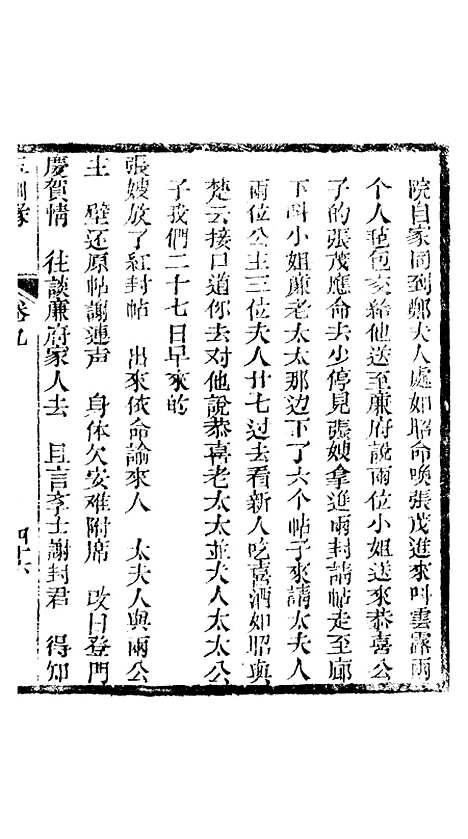 院自家同到鄭夫人處如昭命喚張茂進來呌雲露兩
个人把包衣給他送至廉府說兩位小姐送來恭喜公
子的張茂應命去少停見張嫂拿進兩封請帖走至廊
下呌小姐廉老太太那边下了六个帖子來請太夫人
兩位公主三位夫人廿七过去看新人吃喜酒如昭與
楚云接口道你去对他說恭喜老太太並夫人太太公
子我們二十七日早來的
張嫂放了紅封帖 出來依命諭來人 太夫人與兩公
主 璧还原帖謝連声 身体欠安难附席 改日登門
慶賀情 往談廉府家人去 且言李士謝封君 得知
卷九
四十六